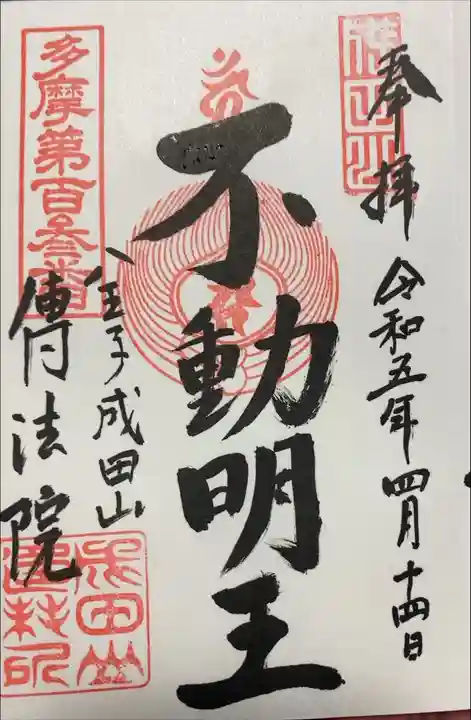 奉拝
令和五年四月十四日
不動明王
八王子成田山
傳法院
多摩第百参番